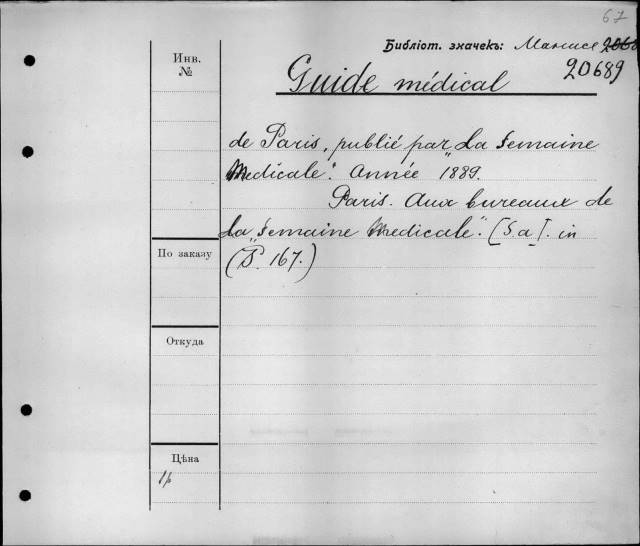 67
Библіот. значекъ:
20689
Инв.
№
Guide médical
de Paris, publié par "La Semaine
Medicale". Année 1889.
Paris. Aux bureaux de
"La Semaine Medicale". [S.a]. in
(P. 167.)
По заказу
Откуда
Цѣна